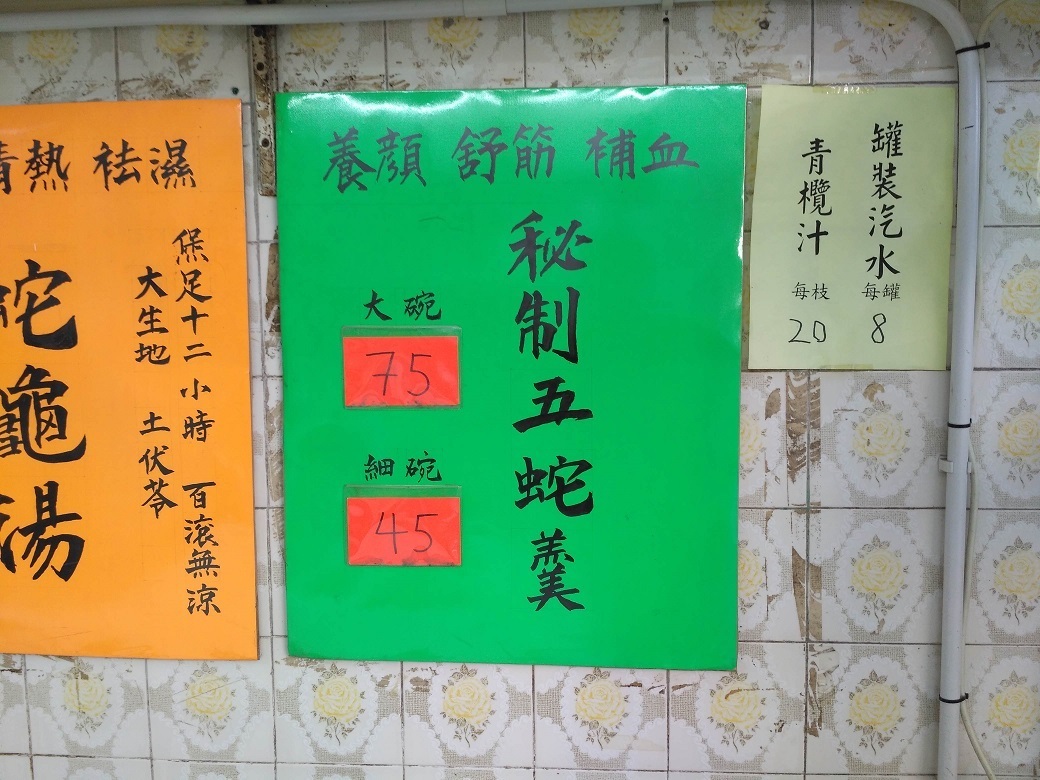 清熱 祛濕
蛇龜湯
煲足十二小時 百滾無涼
大生地 土伏苓
養顏 舒筋 補血
秘制五蛇羹
大碗
75
細碗
45
罐裝汽水
每罐
8
青欖汁
每枝
20